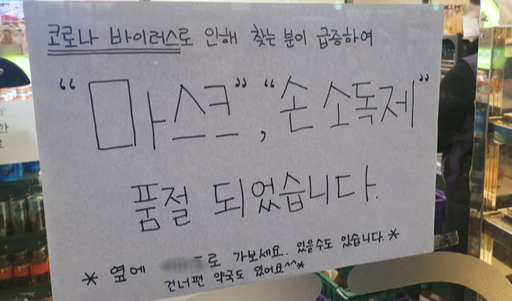 코로나 바이러스로 인해 찾는 분이 급증하여
“마스크”, “손 소독제”
품절 되었습니다.
* 옆에 로 가보세요. 있을수도 있습니다. *
건너편 약국도 없어요^^*